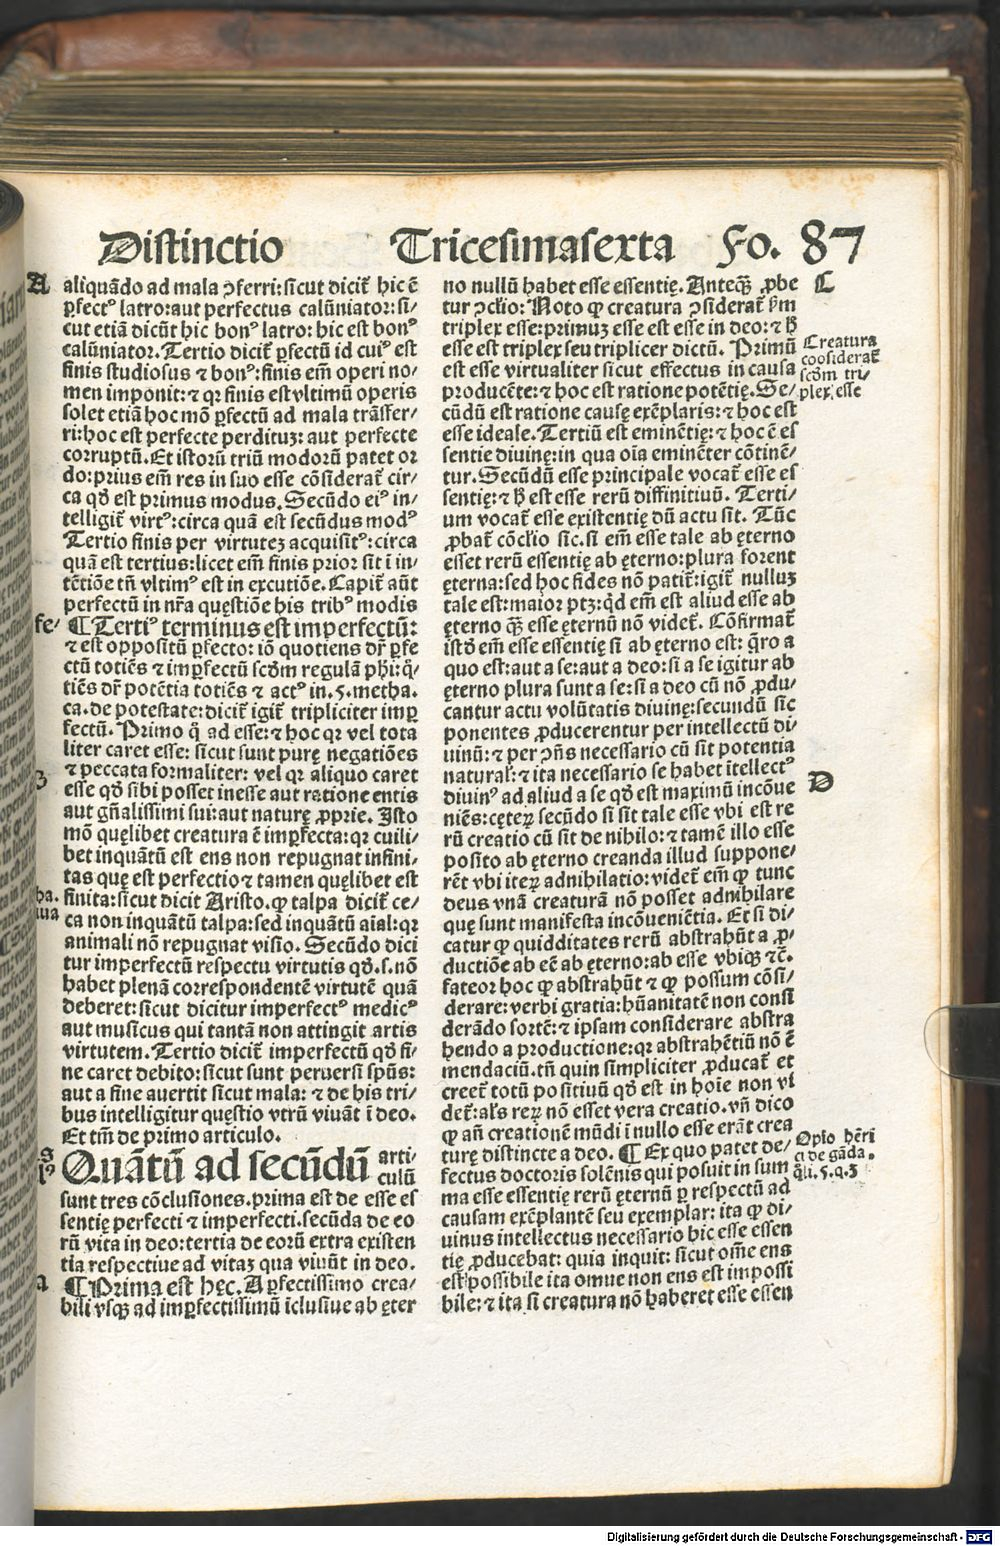 Distinctio Tricesimasexta Fo. 87
A
aliquãdo ad mala ꝯferri: sicut dicit᷑ hic ẽ
ꝑfectꝰ latro: aut perfectus calũniator: si-
cut etiã dicũt hic bonꝰ latro: hic est bonꝰ
calũniator. Tertio dicit᷑ ꝑfectũ id cuiꝰ est
finis studiosus ⁊ bonꝰ: finis em̃ operi no-
men imponit: ⁊ qꝛ finis est vltimũ operis
solet etiã hoc mõ ꝑfectũ ad mala trãsfer-
ri: hoc est perfecte perdituꝫ: aut perfecte
corruptũ. Et istorũ triũ modorũ patet or
do: prius em̃ res in suo esse cõsiderat᷑ cir-
ca qđ est primus modus. Secũdo eiꝰ in-
telligit᷑ virtꝰ: circa quã est secũdus modꝰ
Tertio finis per virtuteꝫ acquisitꝰ: circa
quã est tertius: licet em̃ finis prior sit ĩ in-
tẽtiõe tñ vltimꝰ est in excutiõe. Capit᷑ aũt
perfectũ in nr̃a quęstiõe his tribꝰ modis
¶ Tertiꝰ terminus est imperfectũ:
⁊ est oppositũ ꝑfecto: iõ quotiens dr̃ ꝑfe
ctũ totiẽs ⁊ imꝑfectũ scđm regulã ph̃i: q̃-
tiẽs dr̃ potẽtia totiẽs ⁊ actꝰ in. 5. metha.
ca. de potestate: dicit᷑ igit᷑ tripliciter imꝑ
fectũ. Primo q̃ ad esse: ⁊ hoc qꝛ vel tota
liter caret esse: sicut sunt purę negatiões
⁊ peccata formaliter: vel qꝛ aliquo caret
esse qđ sibi posset inesse aut ratione entis
aut gñalissimi sui: aut naturę ꝓprie. Isto
mõ quęlibet creatura ẽ imꝑfecta: qꝛ cuili-
bet inquãtũ est ens non repugnat infini-
tas quę est perfectio ⁊ tamen quęlibet est
finita: sicut dicit Aristo. ꝙ talpa dicit᷑ ce-
ca non inquãtũ talpa: sed inquãtũ aial: qꝛ
animali nõ repugnat visio. Secũdo dici
tur imperfectũ respectu virtutis qđ. s. nõ
habet plenã correspondentẽ virtutẽ quã
deberet: sicut dicitur imperfectꝰ medicꝰ
aut musicus qui tantã non attingit artis
virtutem. Tertio dicit᷑ imperfectũ qđ fi-
ne caret debito: sicut sunt peruersi spũs:
aut a fine auertit sicut mala: ⁊ de his tri-
bus intelligitur quęstio vtrũ viuãt ĩ deo.
Et tm̃ de primo articulo.
Quãtũ ad secũdũ arti-
culũ
sunt tres cõclusiones. prima est de esse es
sentię perfecti ⁊ imperfecti. secũda de eo
rũ vita in deo: tertia de eorũ extra existen
tia respectiue ad vitaꝫ qua viuũt in deo.
¶ Prima est hęc. A ꝑfectissimo crea-
bili vsqꝫ ad imꝑfectissimũ ĩclusiue ab ęter
no nullũ habet esse essentię. Anteq̃ꝫ ꝓbe
tur ꝯclio: Noto ꝙ creatura ꝯsiderat᷑ ẜm
triplex esse: primuꝫ esse est esse in deo: ⁊ ɦ̃
esse est triplex seu triplicer dictũ. Primũ
est esse virtualiter sicut effectus in causa
producẽte: ⁊ hoc est ratione potẽtię. Se-
cũdũ est ratione causę exẽplaris: ⁊ hoc est
esse ideale. Tertiũ est eminẽtię: ⁊ hoc ẽ es
sentie diuinę: in qua oĩa eminẽter cõtinẽ-
tur. Secũdũ esse principale vocat᷑ esse es
sentię: ⁊ ɦ̃ est esse rerũ diffinitiuũ. Terti-
um vocat᷑ esse existentię dũ actu sit. Tũc
ꝓbat᷑ cõclio sic. si em̃ esse tale ab ęterno
esset rerũ essentię ab ęterno: plura forent
ęterna: sed hoc fides nõ patit᷑: igit᷑ nulluꝫ
tale est: maior ptꝫ: qd̃ em̃ est aliud esse ab
ęterno q̃ꝫ esse ęternũ nõ videt᷑. Cõfirmat᷑
istđ em̃ esse essentię si ab ęterno est: q̃ro a
quo est: aut a se: aut a deo: si a se igitur ab
ęterno plura sunt a se: si a deo cũ nõ ꝓdu-
cantur actu volũtatis diuinę: secundũ sic
ponentes ꝓducerentur per intellectũ di-
uinũ: ⁊ per ꝯñs necessario cũ sit potentia
natural᷑: ⁊ ita necessario se habet ĩtellectꝰ
diuinꝰ ad aliud a se qđ est maximũ incõue
niẽs: cęterꝫ secũdo si sit tale esse vbi est re
rũ creatio cũ sit de nihilo: ⁊ tamẽ illo esse
posito ab ęterno creanda illud suppone-
rẽt vbi iterꝫ adnihilatio: videt᷑ em̃ ꝙ tunc
deus vnã creaturã nõ posset adnihilare
que sunt manifesta incõueniẽtia. Et si di-
catur ꝙ quidditates rerũ abstrahũt a ꝓ-
ductiõe ab eẽ ab ęterno: ab esse vbiqꝫ ⁊c̃.
fateor hoc ꝙ abstrahũt ⁊ ꝙ possum cõsi-
derare: verbi gratia: hũanitatẽ non consi
derãdo sortẽ: ⁊ ipsam considerare abstra
hendo a productione: qꝛ abstrahẽtiũ nõ ẽ
mendaciũ. tñ quin simpliciter ꝓducat᷑ et
creet᷑ totũ positiuũ qđ est in hoĩe non vi
det᷑: al̃s rerꝫ nõ esset vera creatio. vñ dico
ꝙ añ creationẽ mũdi ĩ nullo esse erãt crea
turę distincte a deo. ¶ Ex quo patet de-
fectus doctoris solẽnis qui posuit in sum
ma esse essentię rerũ ęternũ ꝑ respectũ ad
causam exẽplantẽ seu exemplar: ita ꝙ di-
uinus intellectus necessario hic esse essen
tię ꝓducebat: quia inquit: sicut om̃e ens
est possibile ita omne non ens est impossi
bile: ⁊ ita si creatura nõ haberet esse essen
C
Creatura
coosiderat᷑
scđm tri-
plex esse
D
Opĩo hẽri
ci de gãda.
q̃li. 5. q. 3